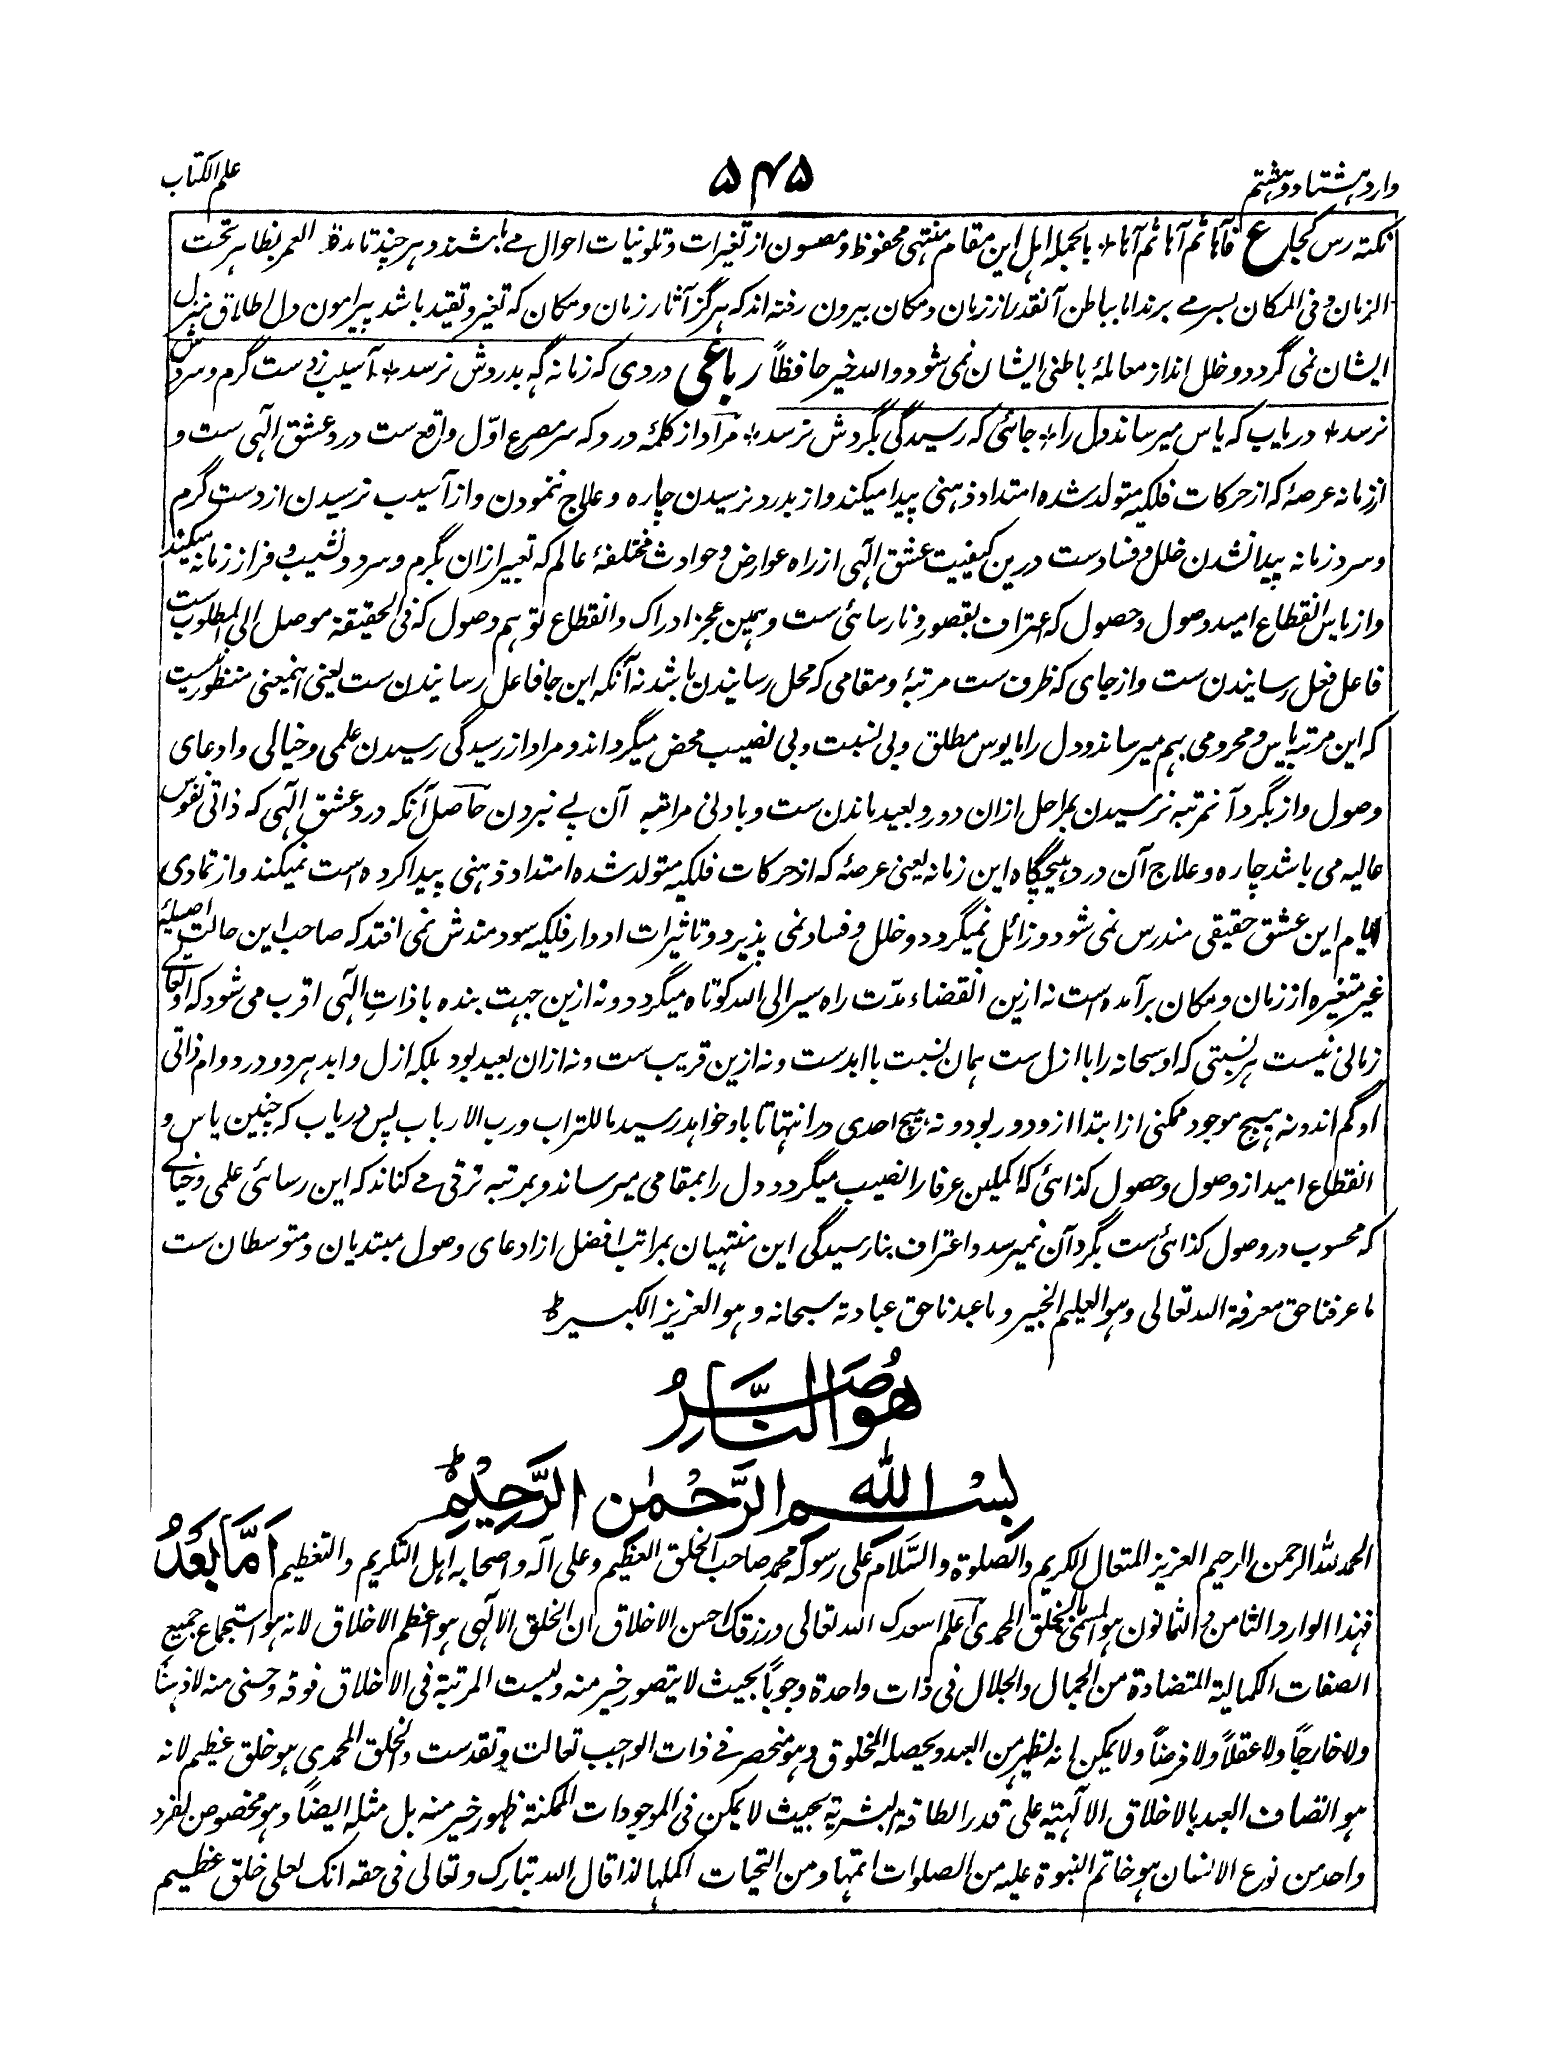 وارد هشتاد و هشتم
۵۴۵
علم الکتاب
نکته رس کجا ع فآها ثم آها ثم آها + بالجمله اهل این مقام منتهی محفوظ و مصسون از تغیرات و تلونیات احوال مے باشند و هر چند تا مدة العمر بظاهر تحت
الزمان و فی المکان بسر مے برند اما بباطن آنقدر از زمان و مکان بیرون رفته اند که هرگز آثار زمان و مکان که تغیر و تقید باشد پیرامون دل اطلاق منزل
ایشان نمی گردد و خلل انداز معاملهٔ باطنی ایشان نمی شود والله خیر حافظاً رباعی دردی که زمانه گه بدردش نرسد + آسیب ز دست گرم و سردش
نرسد + دریاب که یاس میرساند دل را + جائی که رسیدگی بگردش نرسد + مراد از کلمهٔ درد که سر مصرع اوّل واقع ست درد عشق الٓهی ست و
از زمانه عرصهٔ که از حرکات فلکیه متولد شده امتداد ذهنی پیدا میکند و از بدرد نرسیدن چاره و علاج ننمودن و از آسیب نرسیدن از دست گرم
و سرد زمانه پیدا نشدن خلل و فساد ست درین کیفیت عشق الٓهی از راه عوارض و حوادث مختلفهٔ عالم که تعبیر ازان بگرم و سرد و نشیب و فراز زمانه میکنند
و از یاس انقطاع امید وصول و حصول که اعتراف بقصور و نارسائی ست و همین عجز ادراک و انقطاع توهم وصول که فی الحقیقة موصل الی المطلوب ست
فاعل فعل رسانیدن ست و از جای که ظرف ست مرتبهٔ و مقامی که محل رسانیدن باشد نه آنکه این جا فاعل رسانیدن ست یعنی اینمعنی منظور نیست
که این مرتبه یاس و محرومی بهم میرساند و دل را مایوس مطلق و بی نسبت و بی نصیب محض میگرداند و مراد از رسیدگی رسیدن علمی و خیالی و ادعای
وصول و از بگرد آنمرتبه نرسیدن بمراحل ازان دور و بعید ماندن ست و بادنی مراتب آن پے نبردن حاصل آنکه درد عشق الٓهی که ذاتی نفوس
عالیه می باشد چاره و علاج آن درد هیچگاه این زمانه یعنی عرصهٔ که از حرکات فلکیه متولد شده امتداد ذهنی پیدا کرده است نمیکند و از تمادی
ایام این عشق حقیقی مندرس نمی شود و زائل نمیگردد و خلل و فساد نمی پذیرد و تاثیرات ادوار فلکیه سودمندش نمی افتد که صاحب این حالت اصلیهٔ
غیر متغیره از زمان و مکان برآمده است نه ازین انقضاء مدّت راه سیر الی الله کوتاه میگردد و نه ازین جهت بنده با ذات الٓهی اقرب می شود که او تعالے
زمانی نیست هر نسبتی که او سبحانه را با ازل ست همان نسبت با ابدست و نه ازین قریب ست و نه ازان بعید بود بلکه ازل و ابد هر دو در دوام ذاتی
او گم اند و نه هیچ موجود ممکنی از ابتدا ازو دور بود و نه هیچ احدی در انتها تا باو خواهد رسید ما للتراب و رب الارباب پس دریاب که چنین یاس و
انقطاع امید از وصول و حصول کذائی که کاملین عرفا را نصیب میگردد دل را بمقامی میرساند و بمرتبه ترقی مے کناند که این رسائی علمی و خیالے
که محسوب در وصول کذائی ست بگرد آن نمیرسد و اعتراف بنارسیدگی این منتهیان بمراتب افضل از ادعای وصول مبتدیان و متوسطان ست
ما عرفنا حق معرفة الله تعالی و هو العلیم الخبیر و ما عبدنا حق عبادته سبحانه و هو العزیز الکبیر
هُو النَّاصِرُ
بِسْمِ اللّٰهِ الرَّحْمٰنِ الرَّحِیْمِ
الحمد لله الرحمن الرحیم العزیز المتعال الکریم والصّلوة والسّلام علی رسوله محمد صاحب الخلق العظیم و علی آله و اصحابه اهل التکریم والتعظیم اَمَّا بَعْدُ
فهذا الوارد الثامن و الثمانون هو المسمی بالخلق المحمدی اعلم اسعدک الله تعالی و رزقک احسن الاخلاق ان الخلق الالٓهی هو اعظم الاخلاق لانه هو استجماع جمیع
الصفات الکمالیة المتضادة من الجمال والجلال فی ذات واحدة وجوباً بحیث لا یتصور خیر منه و لیست المرتبة فی الاخلاق فوقه و حسنی منه لا ذهناً
ولا خارجاً ولا عقلاً ولا فرضاً ولا یمکن انه یظهر من العبد و یحصله المخلوق و هو منحصر فے ذات الواجب تعالت و تقدست والخلق المحمدی هو خلق عظیم لانه
هو اتصاف العبد بالاخلاق الالٓهیة علی قدر الطاقة البشریة بحیث لا یمکن فی الموجودات الممکنة ظهور خیر منه بل مثله ایضاً و هو مخصوص لفرد
واحد من نوع الانسان هو خاتم النبوة علیه من الصلوات اتمها و من التحیات اکملها لذا قال الله تبارک و تعالی فی حقه انک لعلی خلق عظیم